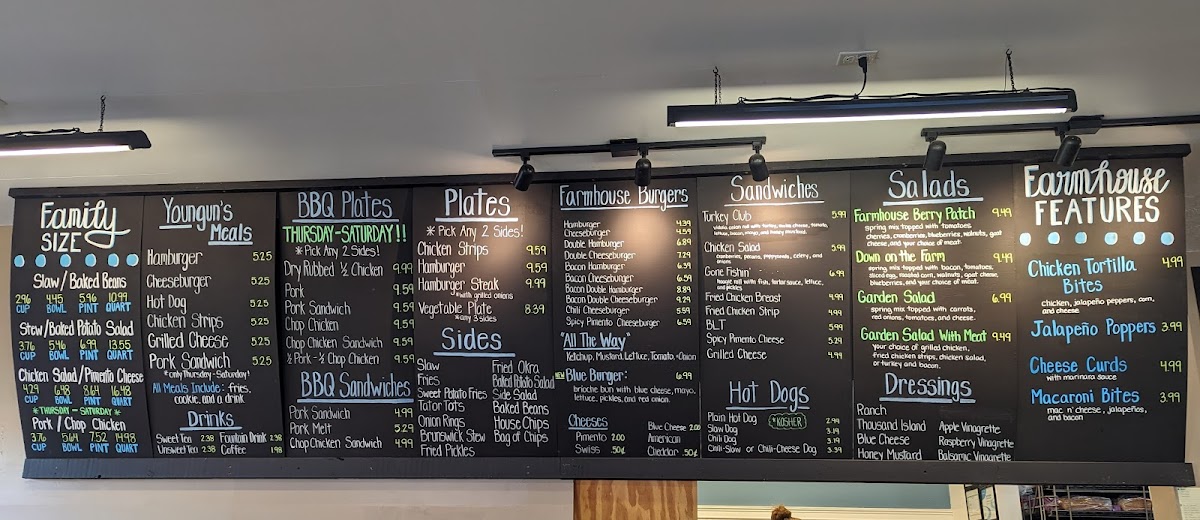 Family
SIZE
Slaw / Baked Beans
2.96 4.45 5.96 10.99
CUP BOWL PINT QUART
Stew / Baked Potato Salad
3.76 5.46 6.99 13.55
CUP BOWL PINT QUART
Chicken Salad / Pimento Cheese
4.29 6.98 8.64 16.48
CUP BOWL PINT QUART
*THURSDAY - SATURDAY*
Pork / Chop Chicken
3.76 5.64 7.52 14.98
CUP BOWL PINT QUART
Youngun's
Meals
Hamburger 5.25
Cheeseburger 5.25
Hot Dog 5.25
Chicken Strips 5.25
Grilled Cheese 5.25
Pork Sandwich 5.25
*only Thursday-Saturday!
All Meals Include: fries,
cookie, and a drink
Drinks
Sweet Tea 2.38 Fountain Drink 2.38
Unsweet Tea 2.38 Coffee 1.98
BBQ Plates
THURSDAY-SATURDAY!!
*Pick Any 2 Sides!
Dry Rubbed ½ Chicken 9.99
Pork 9.59
Pork Sandwich 9.59
Chop Chicken 9.59
Chop Chicken Sandwich 9.59
½ Pork - ½ Chop Chicken 9.59
BBQ Sandwiches
Pork Sandwich 4.99
Pork Melt 5.29
Chop Chicken Sandwich 4.99
Plates
*Pick Any 2 Sides!
Chicken Strips 9.59
Hamburger 9.59
Hamburger Steak 9.99
*with grilled onions
Vegetable Plate 8.39
*any 3 sides
Sides
Slaw
Fries
Sweet Potato Fries
Tator Tots
Onion Rings
Brunswick Stew
Fried Pickles
Fried Okra
Baked Potato Salad
Side Salad
Baked Beans
House Chips
Bag of Chips
Farmhouse Burgers
Hamburger 4.39
Cheeseburger 4.59
Double Hamburger 6.89
Double Cheeseburger 7.29
Bacon Hamburger 6.39
Bacon Cheeseburger 6.59
Bacon Double Hamburger 8.89
Bacon Double Cheeseburger 9.29
Chili Cheeseburger 5.59
Spicy Pimento Cheeseburger 6.59
"All The Way"
Ketchup, Mustard, Lettuce, Tomato, + Onion
NEW Blue Burger: 6.99
brioche bun with blue cheese, mayo,
lettuce, pickles, and red onion.
Cheeses
Pimento 2.00
Swiss .50¢
Blue Cheese 2.00
American
Cheddar .50¢
Sandwiches
Turkey Club 5.99
lettuce, bacon, mayo, and honey mustard.
Chicken Salad 5.99
cranberries, pecans, poppyseeds, celery, and
onions
Gone Fishin'
hoagie roll with fish, tartar sauce, lettuce,
and pickles
Fried Chicken Breast 4.99
Fried Chicken Strip 4.99
BLT 5.99
Spicy Pimento Cheese 5.29
Grilled Cheese 4.99
Hot Dogs
*KOSHER
Plain Hot Dog 2.99
Slaw Dog 3.19
Chili Dog 3.19
Chili-Slaw or Chili-Cheese Dog 3.39
Salads
Farmhouse Berry Patch 9.49
spring mix topped with tomatoes
cherries, cranberries, blueberries, walnuts, goat
cheese, and your choice of meat
Down on the Farm 9.49
spring mix topped with bacon, tomatoes,
sliced egg, roasted corn, walnuts, goat cheese,
blueberries, and your choice of meat.
Garden Salad 6.99
spring mix topped with carrots,
red onions, tomatoes, and cheese.
Garden Salad With Meat 9.49
your choice of grilled chicken,
fried chicken strips, chicken salad,
or turkey and bacon.
Dressings
Ranch
Thousand Island
Blue Cheese
Honey Mustard
Apple Vinagrette
Raspberry Vinagrette
Balsamic Vinagrette
Farmhouse
FEATURES
Chicken Tortilla 4.99
Bites
chicken, jalapeño peppers, corn,
and cheese
Jalapeño Poppers 3.99
Cheese Curds 4.99
with marinara sauce
Macaroni Bites 3.99
mac n' cheese, jalapeños,
and bacon